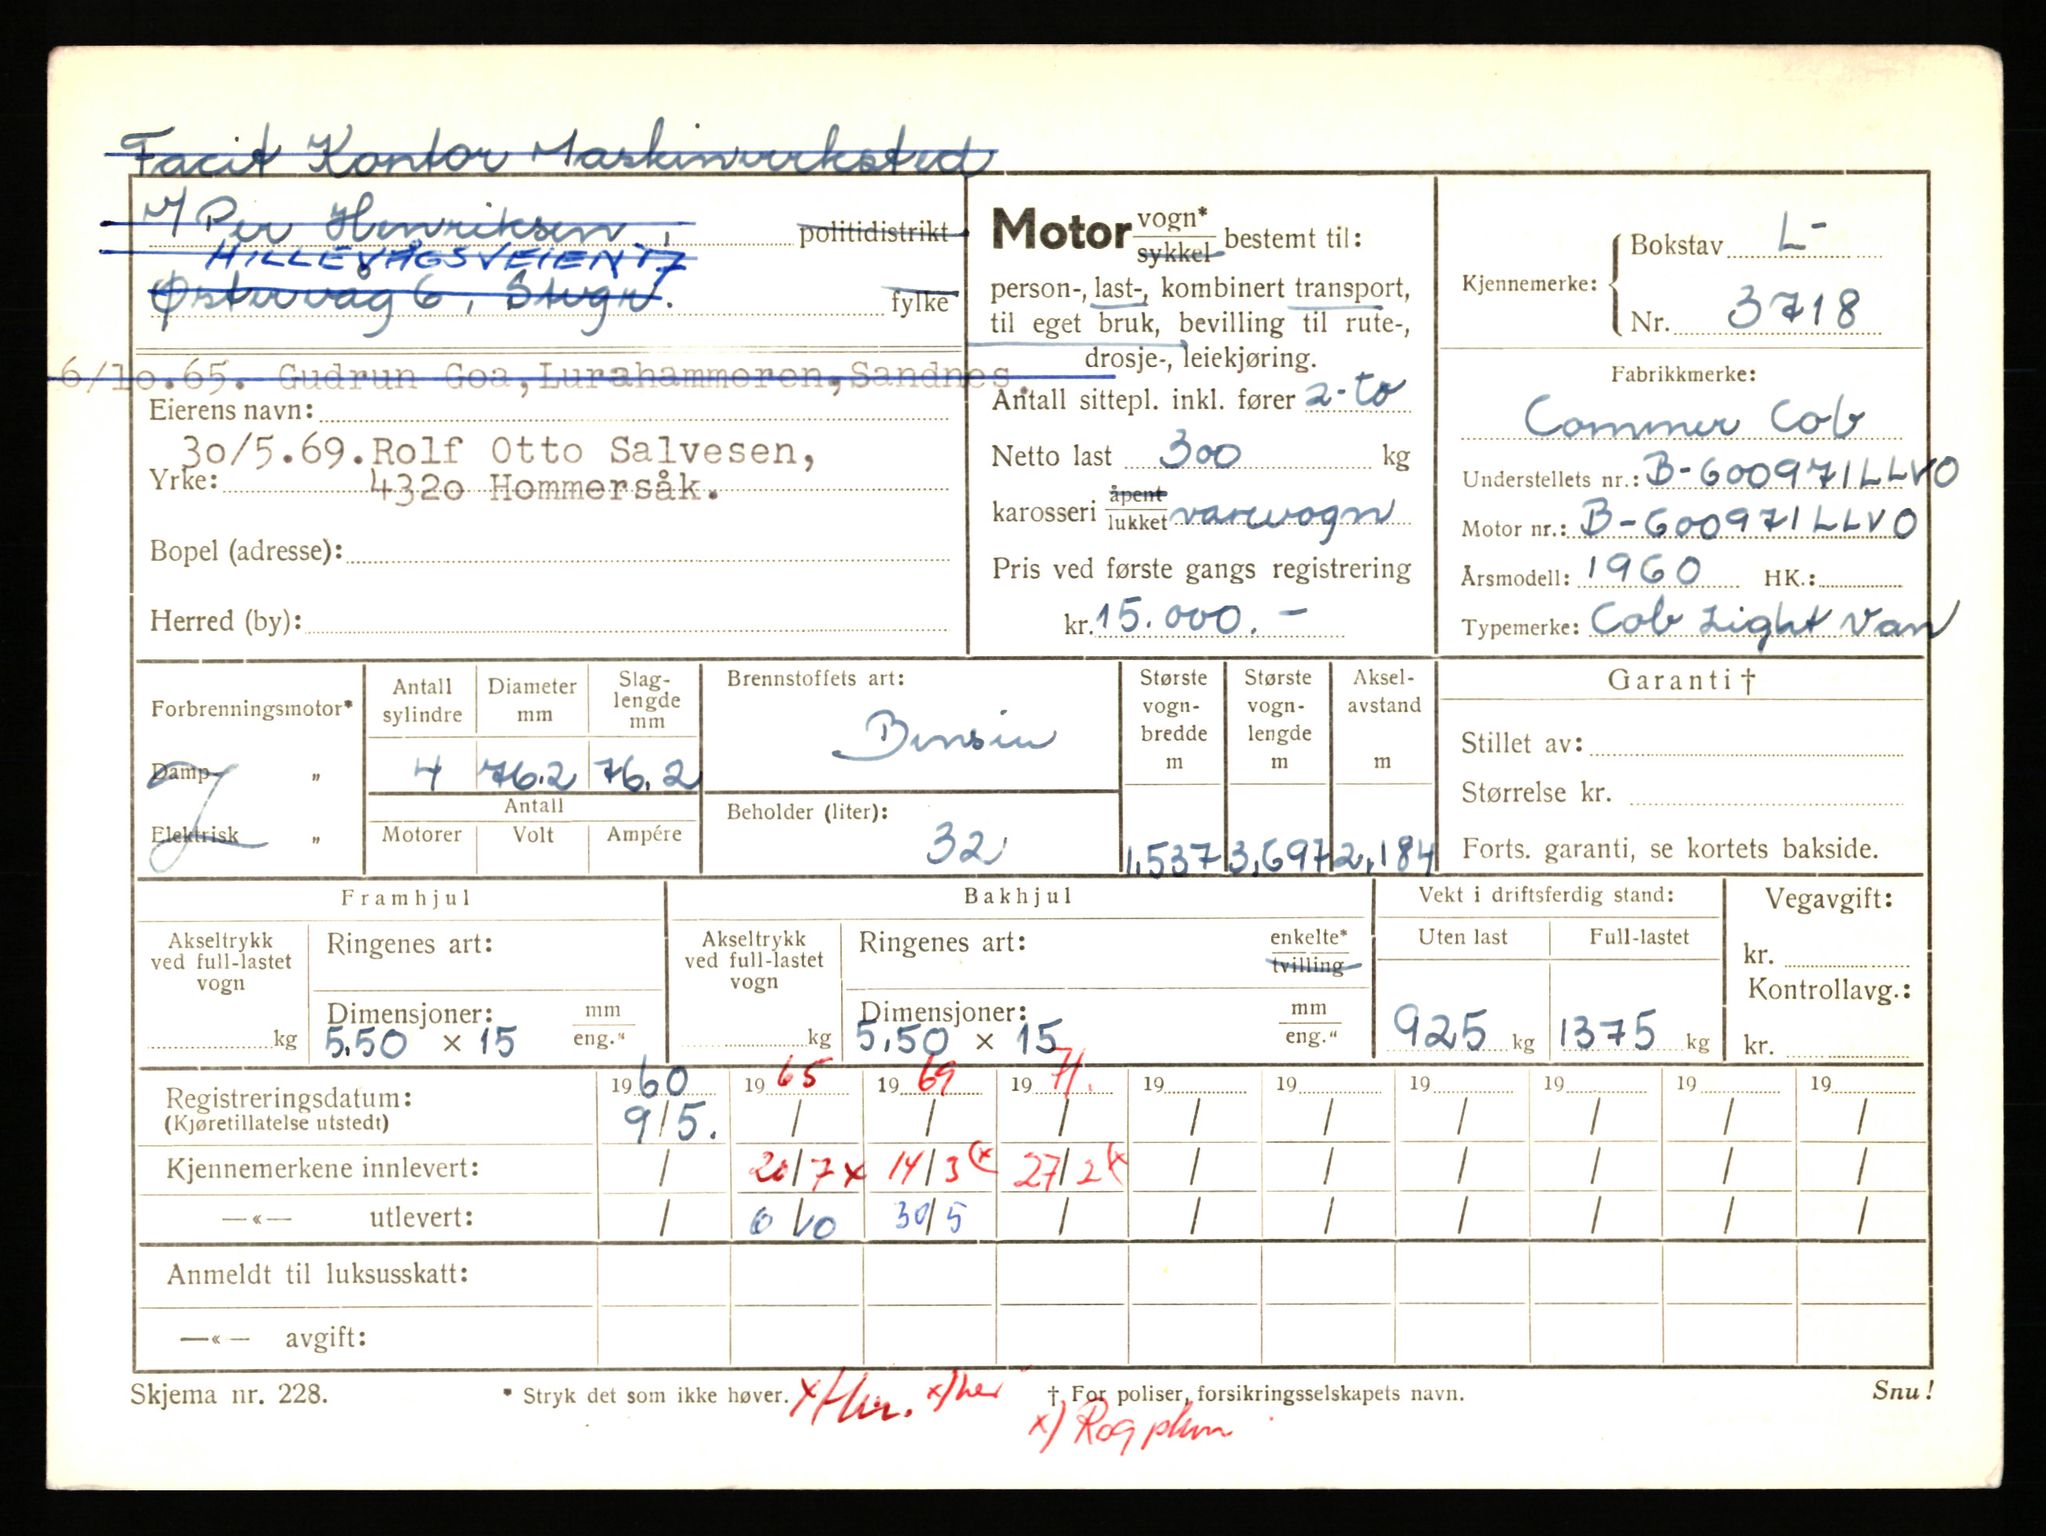 Facit Kontor Maskinverksted
v/ Per Henriksen, politidistrikt
HILLEVÅGSVEIEN 17
Østervåg 6, Stvgr. fylke
6/10.65. Gudrun Goa, Lurahammeren, Sandnes.
Eierens navn:
30/5.69. Rolf Otto Salvesen,
Yrke: 4320 Hommersåk.
Bopel (adresse):
Herred (by):
Motor vogn* / sykkel bestemt til:
person-, last-, kombinert transport,
til eget bruk, bevilling til rute-,
drosje-, leiekjøring.
Antall sittepl. inkl. fører 2-to
Netto last 300 kg
karosseri åpent / lukket varevogn
Pris ved første gangs registrering
kr. 15.000.-
Kjennemerke: Bokstav L-
Nr. 3718
Fabrikkmerke:
Commer Cob
Understellets nr.: B-600971LLVO
Motor nr.: B-600971LLVO
Årsmodell: 1960 HK.:
Typemerke: Cob Light Van
Forbrenningsmotor*
Damp- „
Elektrisk „
Antall sylindre 4
Diameter mm 76.2
Slaglengde mm 76.2
Antall
Motorer Volt Ampére
Brennstoffets art:
Bensin
Beholder (liter):
32
Største vognbredde m 1,537
Største vognlengde m 3,697
Akselavstand m 2,184
Garanti †
Stillet av:
Størrelse kr.
Forts. garanti, se kortets bakside.
Framhjul
Akseltrykk ved full-lastet vogn
kg
Ringenes art:
Dimensjoner: mm / eng."
5.50 x 15
Bakhjul
Akseltrykk ved full-lastet vogn
kg
Ringenes art: enkelte* / tvilling
Dimensjoner: mm / eng."
5.50 x 15
Vekt i driftsferdig stand:
Uten last Full-lastet
925 kg 1375 kg
Vegavgift:
kr.
Kontrollavg.:
kr.
1960 1965 1969 1971. 19 19 19 19 19 19
Registreringsdatum: 9/5. / / / / / / / / /
(Kjøretillatelse utstedt)
Kjennemerkene innlevert: / 20/7 x 14/3 (x 27/2 (x / / / / / /
—«— utlevert: / 6/10 30/5 / / / / / / /
Anmeldt til luksusskatt:
—«— avgift:
Skjema nr. 228. * Stryk det som ikke høver. x) her † For poliser, forsikringsselskapets navn. Snu!
x) Rog plum